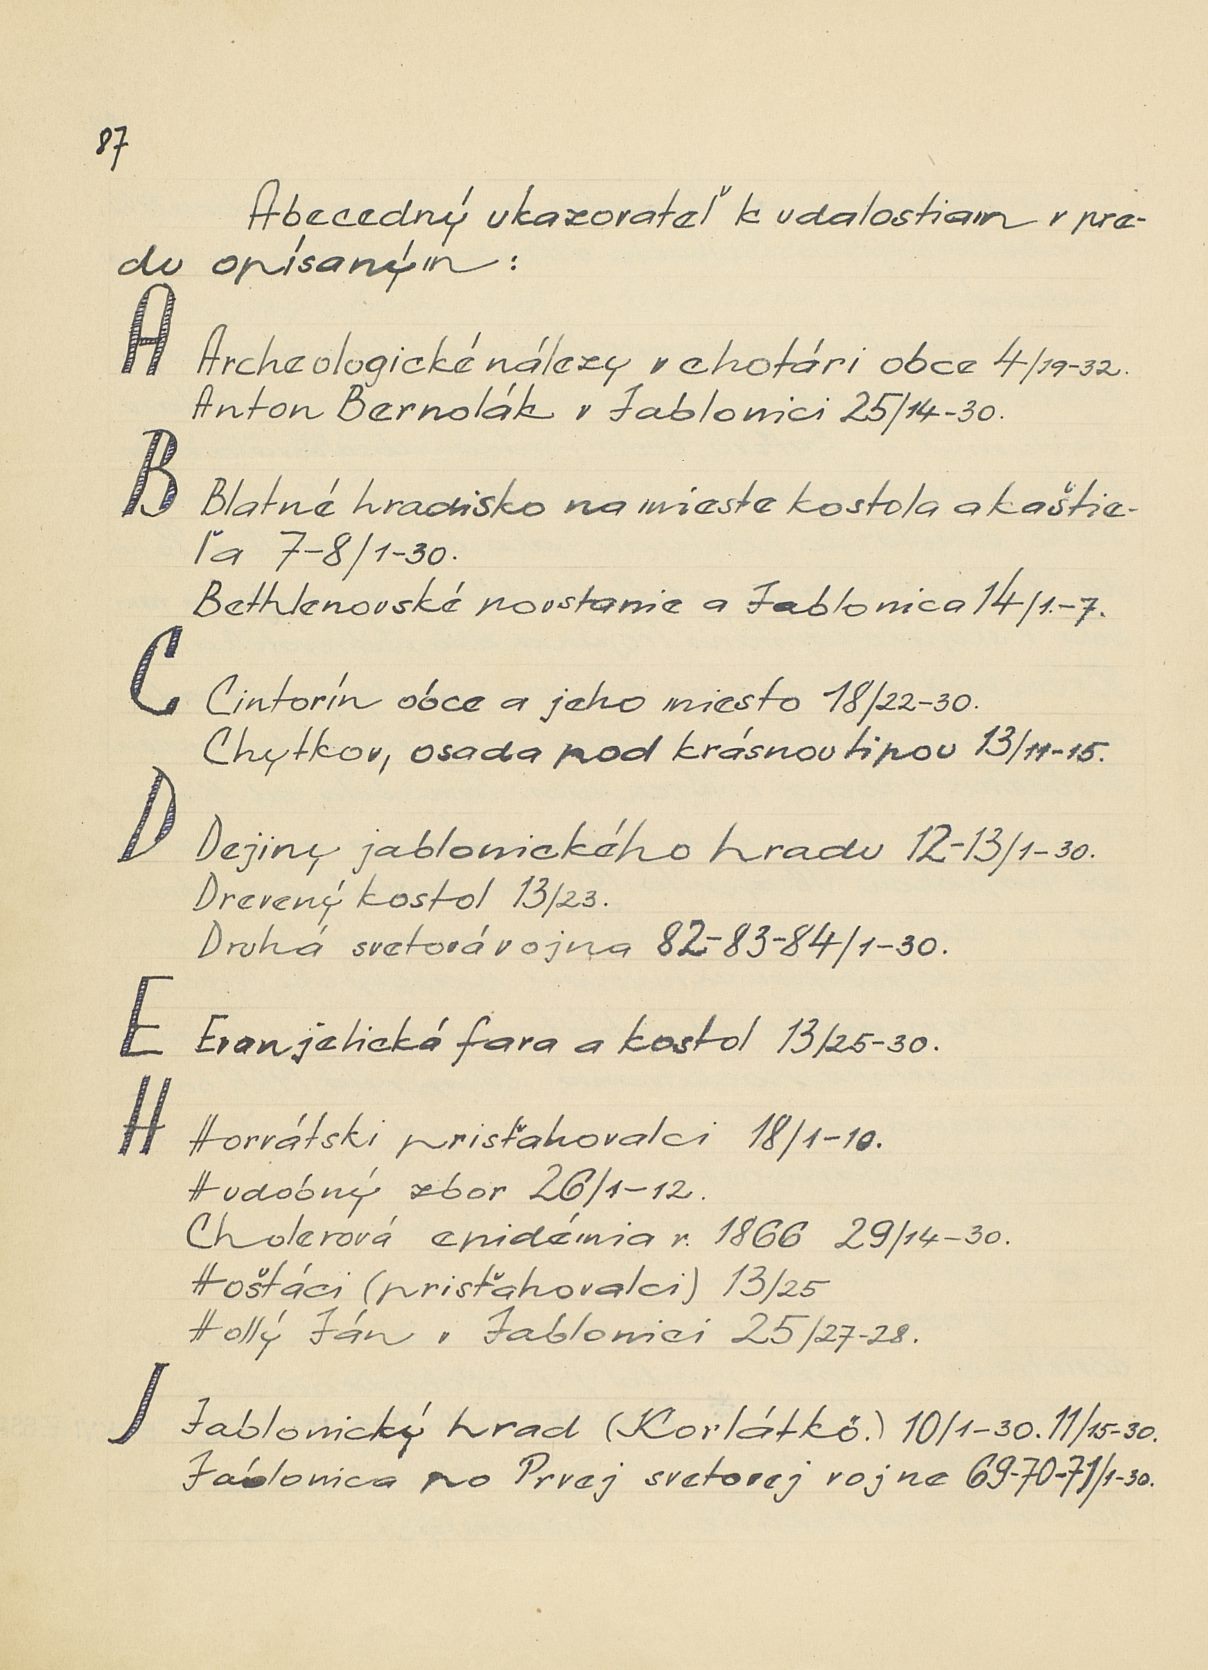 87
Abecedný ukazovateľ k udalostiam v pre-
du opísaným:
A
Archeologické nálezy v chotári obce 4/19-32.
Anton Bernolák v Jablonici 25/14-30.
B
Blatné hradisko na mieste kostola a kaštie-
ľa 7-8/1-30.
Bethlenovské povstanie a Jablonica 14/1.-7.
C
Cintorín obce a jeho miesto 18/22-30.
Chytkov, osada pod krásnou lipou 13/11-15.
D
Dejiny jablonického hradu 12-13/1-30.
Drevený kostol 13/23.
Druhá svetová vojna 82-83-84/1-30.
E
Evanjelická fara a kostol 13/25-30.
H
Horvátski prisťahovalci 18/1-10.
Hudobný zbor 26/1-12.
Cholerová epidémia r. 1866 29/14-30.
Hošťáci (prisťahovalci) 13/25
Hollý Ján v Jablonici 25/27-28.
J
Jablonický hrad (Korlátkő.) 10/1-30. 11/15-30.
Jablonica po Prvej svetovej vojne 69-70-71/1-30.